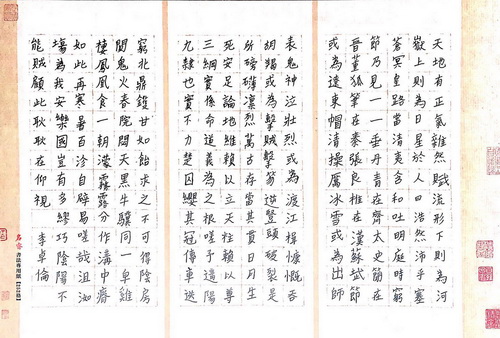 天地有正氣雜然賦流形下則為河
嶽上則為日星於人曰浩然沛乎塞
蒼冥皇路當清夷含和吐明庭時窮
節乃見一一垂丹青在齊太史簡在
晉董狐筆在秦張良椎在漢蘇武節
或為遼東帽清操厲冰雪或為出師
表鬼神泣壯烈或為渡江楫慷慨吞
胡羯或為擊賊擊笏逆豎頭破裂是
所磅礴凜烈萬古存當其貫日月生
死安足論地維賴以立天柱賴以尊
三綱實係命道義為之根嗟予遘陽
九隸也實不力楚囚纓其冠傳車送
窮北鼎鑊甘如飴求之不可得陰房
鬼火春院閟天黑牛驥同一皁雞
棲鳳凰食一朝濛霧露分作溝中瘠
如此再寒暑百沴自辟易嗟哉沮洳
場為我安樂國豈有多繆巧陰陽不
能賊顧此耿耿在仰視 李卓倫
書法專用紙